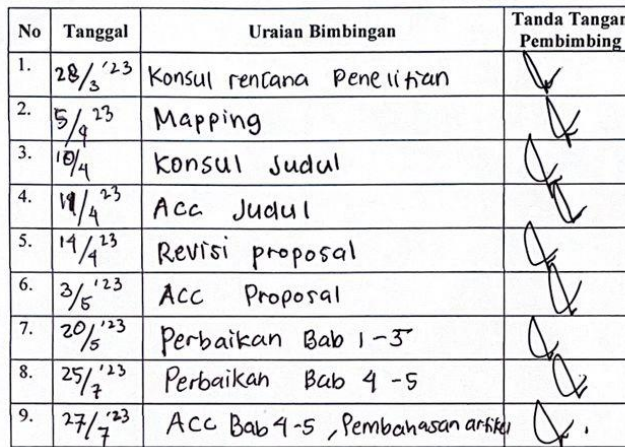 No Tanggal Uraian Bimbingan Tanda Tangan Pembimbing
1. 28/3 '23 Konsul rencana Penelitian
2. 5/4 23 Mapping
3. 10/4 Konsul Judul
4. 11/4 23 Acc Judul
5. 14/4 23 Revisi proposal
6. 3/5 '23 ACC Proposal
7. 20/5 '23 Perbaikan Bab 1-3
8. 25/7 '23 Perbaikan Bab 4-5
9. 27/7 '23 ACC Bab 4-5, Pembahasan artikel